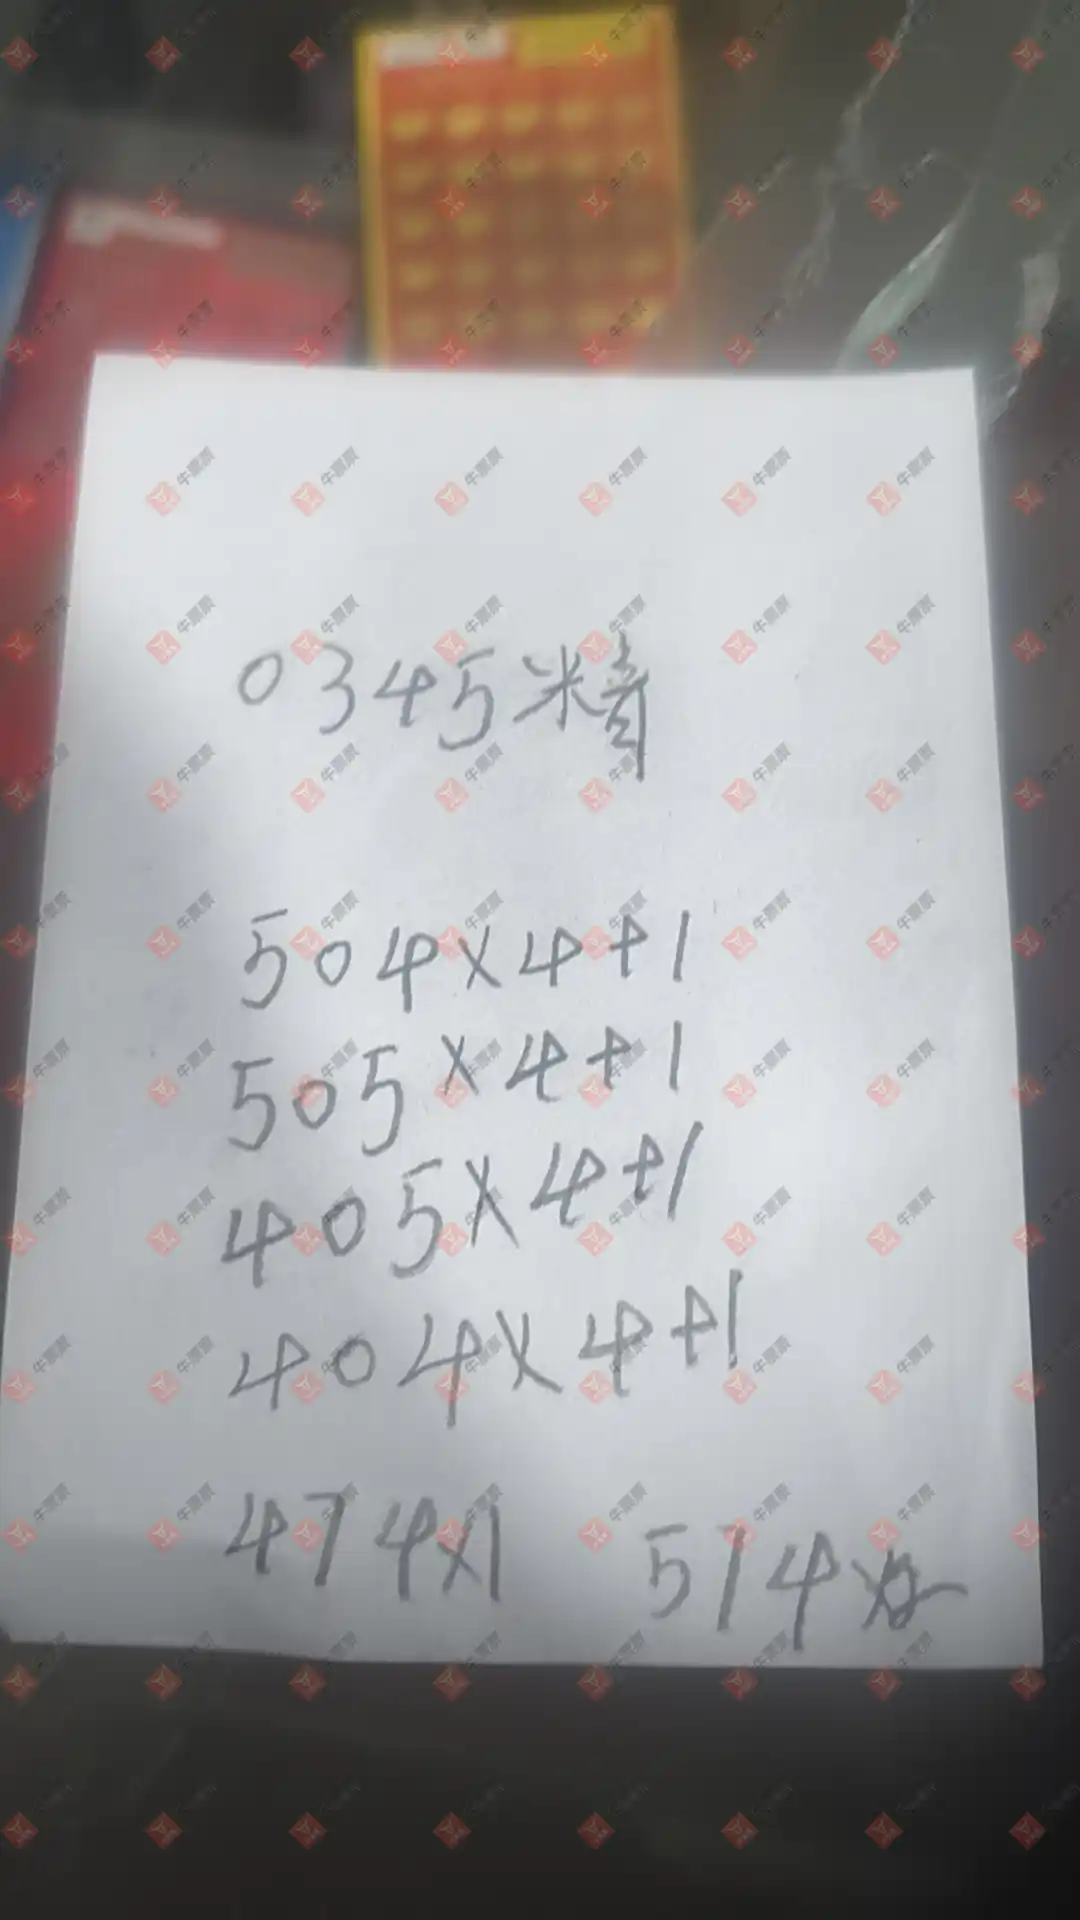 0345米精
504×4+1
505×4+1
405×4+1
404×4+1
474×1 514×2
牛票票